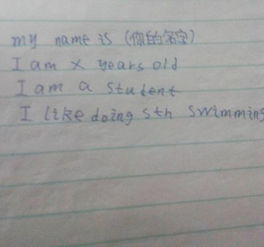 my name is (你的名字)
I am x years old
I am a student
I like doing sth swimming